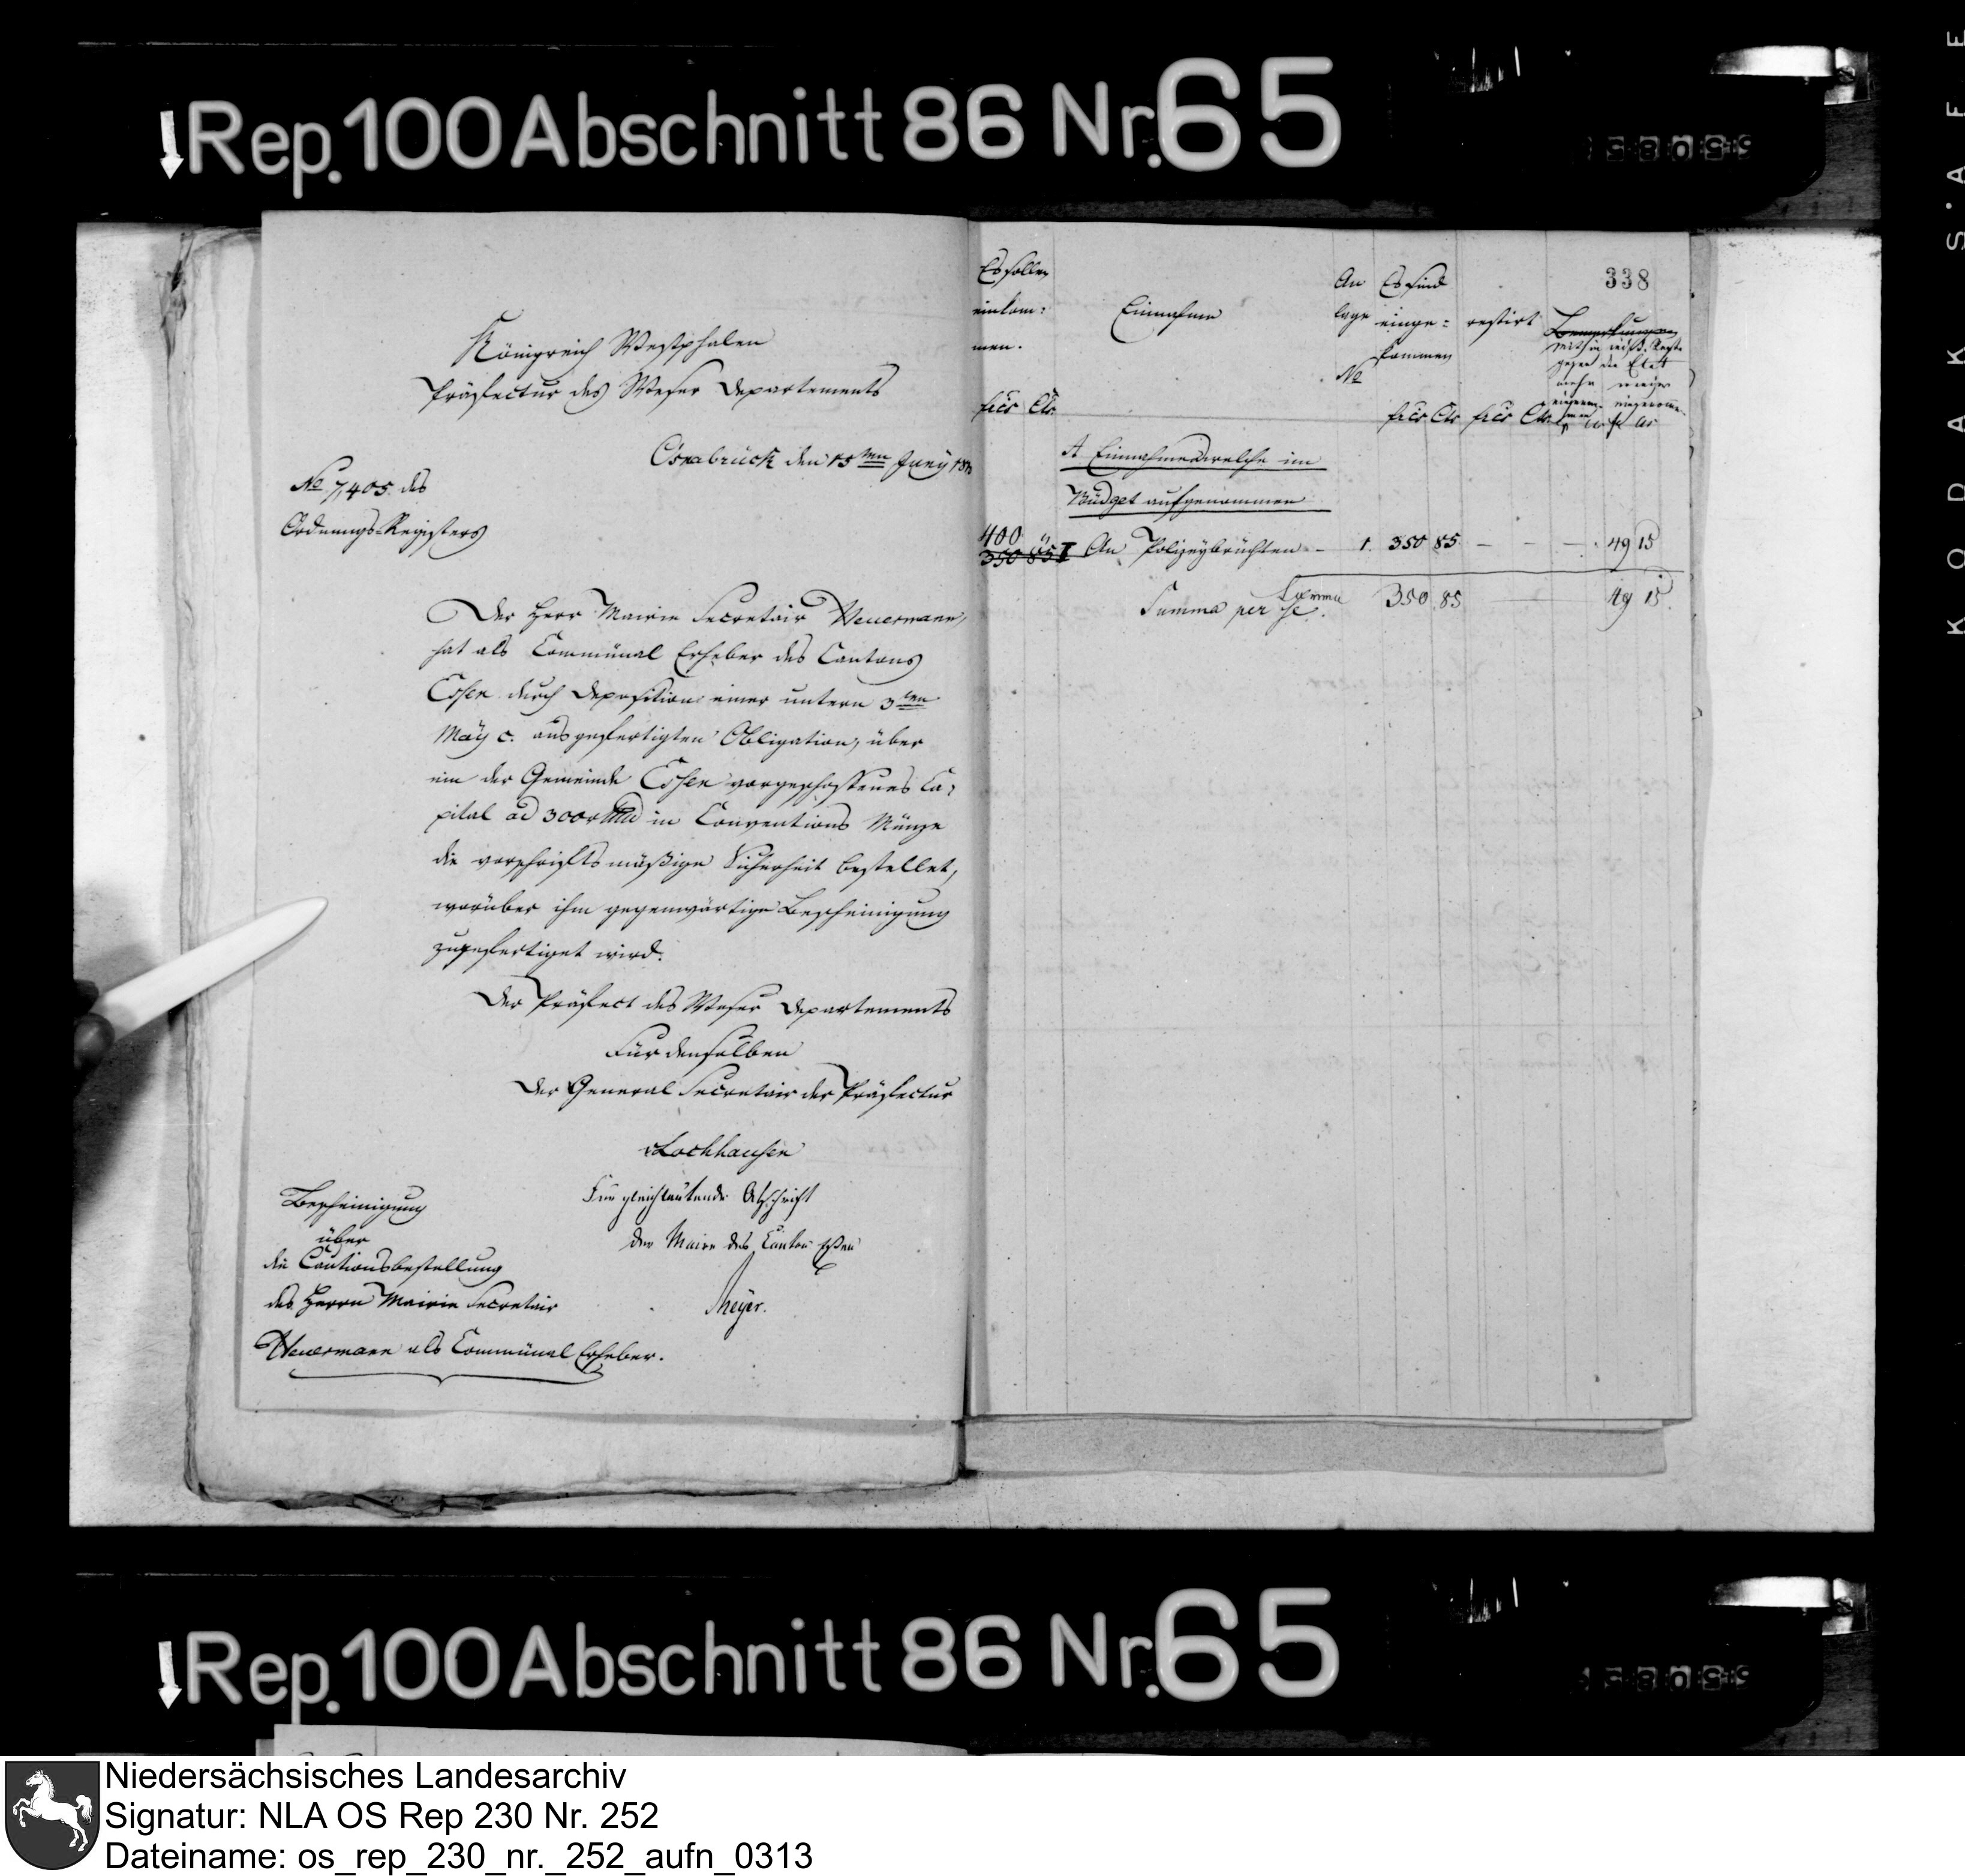 Rep. 100 Abschnitt 86 Nr. 65
KODAK S.AFE
Königreich Westphalen
Präfectur des Weser Departements
Osnabrück den 15ten Juny 18
No 7,405. des
Ordnungs-Registers
Der Herr Mairie Secretair Heuermann,
hat als Communal Erheber des Cantons
Essen durch Deposition einer unterm 3ten
May c. ausgefertigten Obligation, über
ein der Gemeinde Essen vorgeschossenes Ca-
pital ad 300 in Conventions Münze
die vorschriftsmäßige Sicherheit bestellet,
worüber ihm gegenwärtige Bescheinigung
zugefertiget wird.
Der Präfect des Weser Departements
Für denselben
Der General Secretair der Präfectur
Lochhausen
Für gleichlautende Abschrift
der Maire des Canton Essen
Meyer.
Bescheinigung
über
die Cautionsbestellung
des Herrn Mairie Secretair
Heuermann als Communal Erheber.
338
Es sollen
einkom:
men.
frcs Cts
Einnahme
An
lage
No
Es sind
einge=
kommen
frcs Cts
restirt
frcs Cts
Bemerkungen
mithin
gegen den Etat
mehr weniger
eingenom- eingenommen
men
A Einnahme welche im
Büdget aufgenommen
400 "
350 85 I An Polizeybrüchten - 1. 350 85 - - - 49 15
Summa per se. 350 85 49 15.
Rep. 100 Abschnitt 86 Nr. 65
Niedersächsisches Landesarchiv
Signatur: NLA OS Rep 230 Nr. 252
Dateiname: os_rep_230_nr._252_aufn_0313